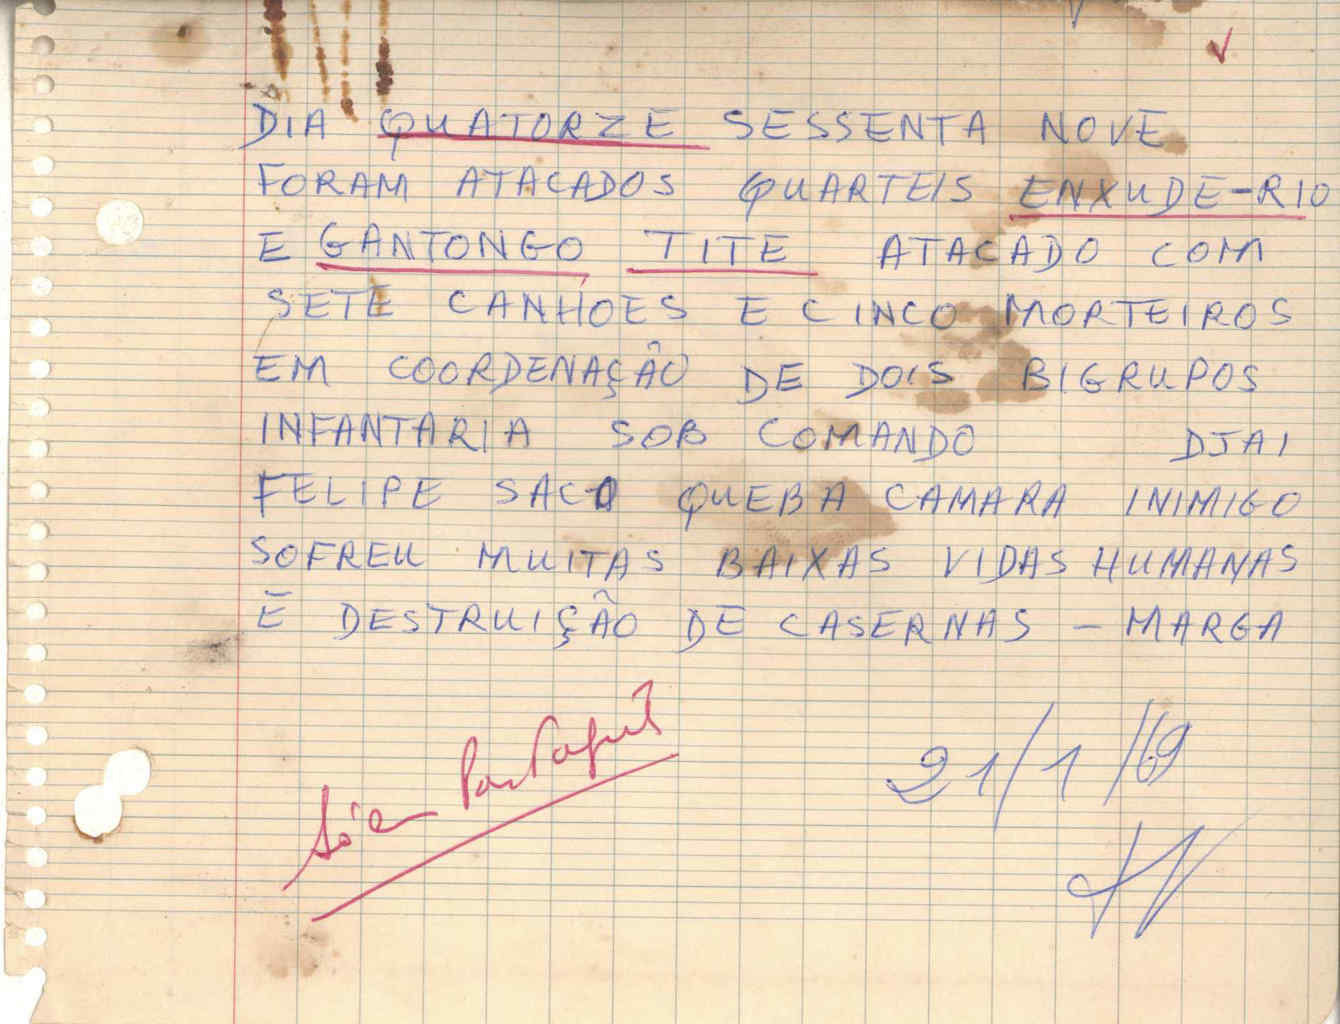 DIA QUATORZE SESSENTA NOVE
FORAM ATACADOS QUARTEIS ENXUDE-RIO
E GANTONGO TITE ATACADO COM
SETE CANHOES E CINCO MORTEIROS
EM COORDENAÇÃO DE DOIS BIGRUPOS
INFANTARIA SOB COMANDO DJAI
FELIPE SACO QUEBA CAMARA INIMIGO
SOFREU MUITAS BAIXAS VIDAS HUMANAS
E DESTRUIÇÃO DE CASERNAS - MARGA
Só em Português
21/1/69